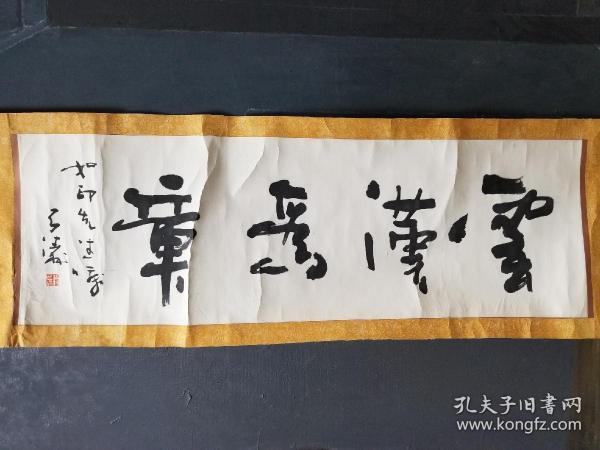 雲漢為章
如印先生屬
孔夫子旧書网
www.kongfz.com